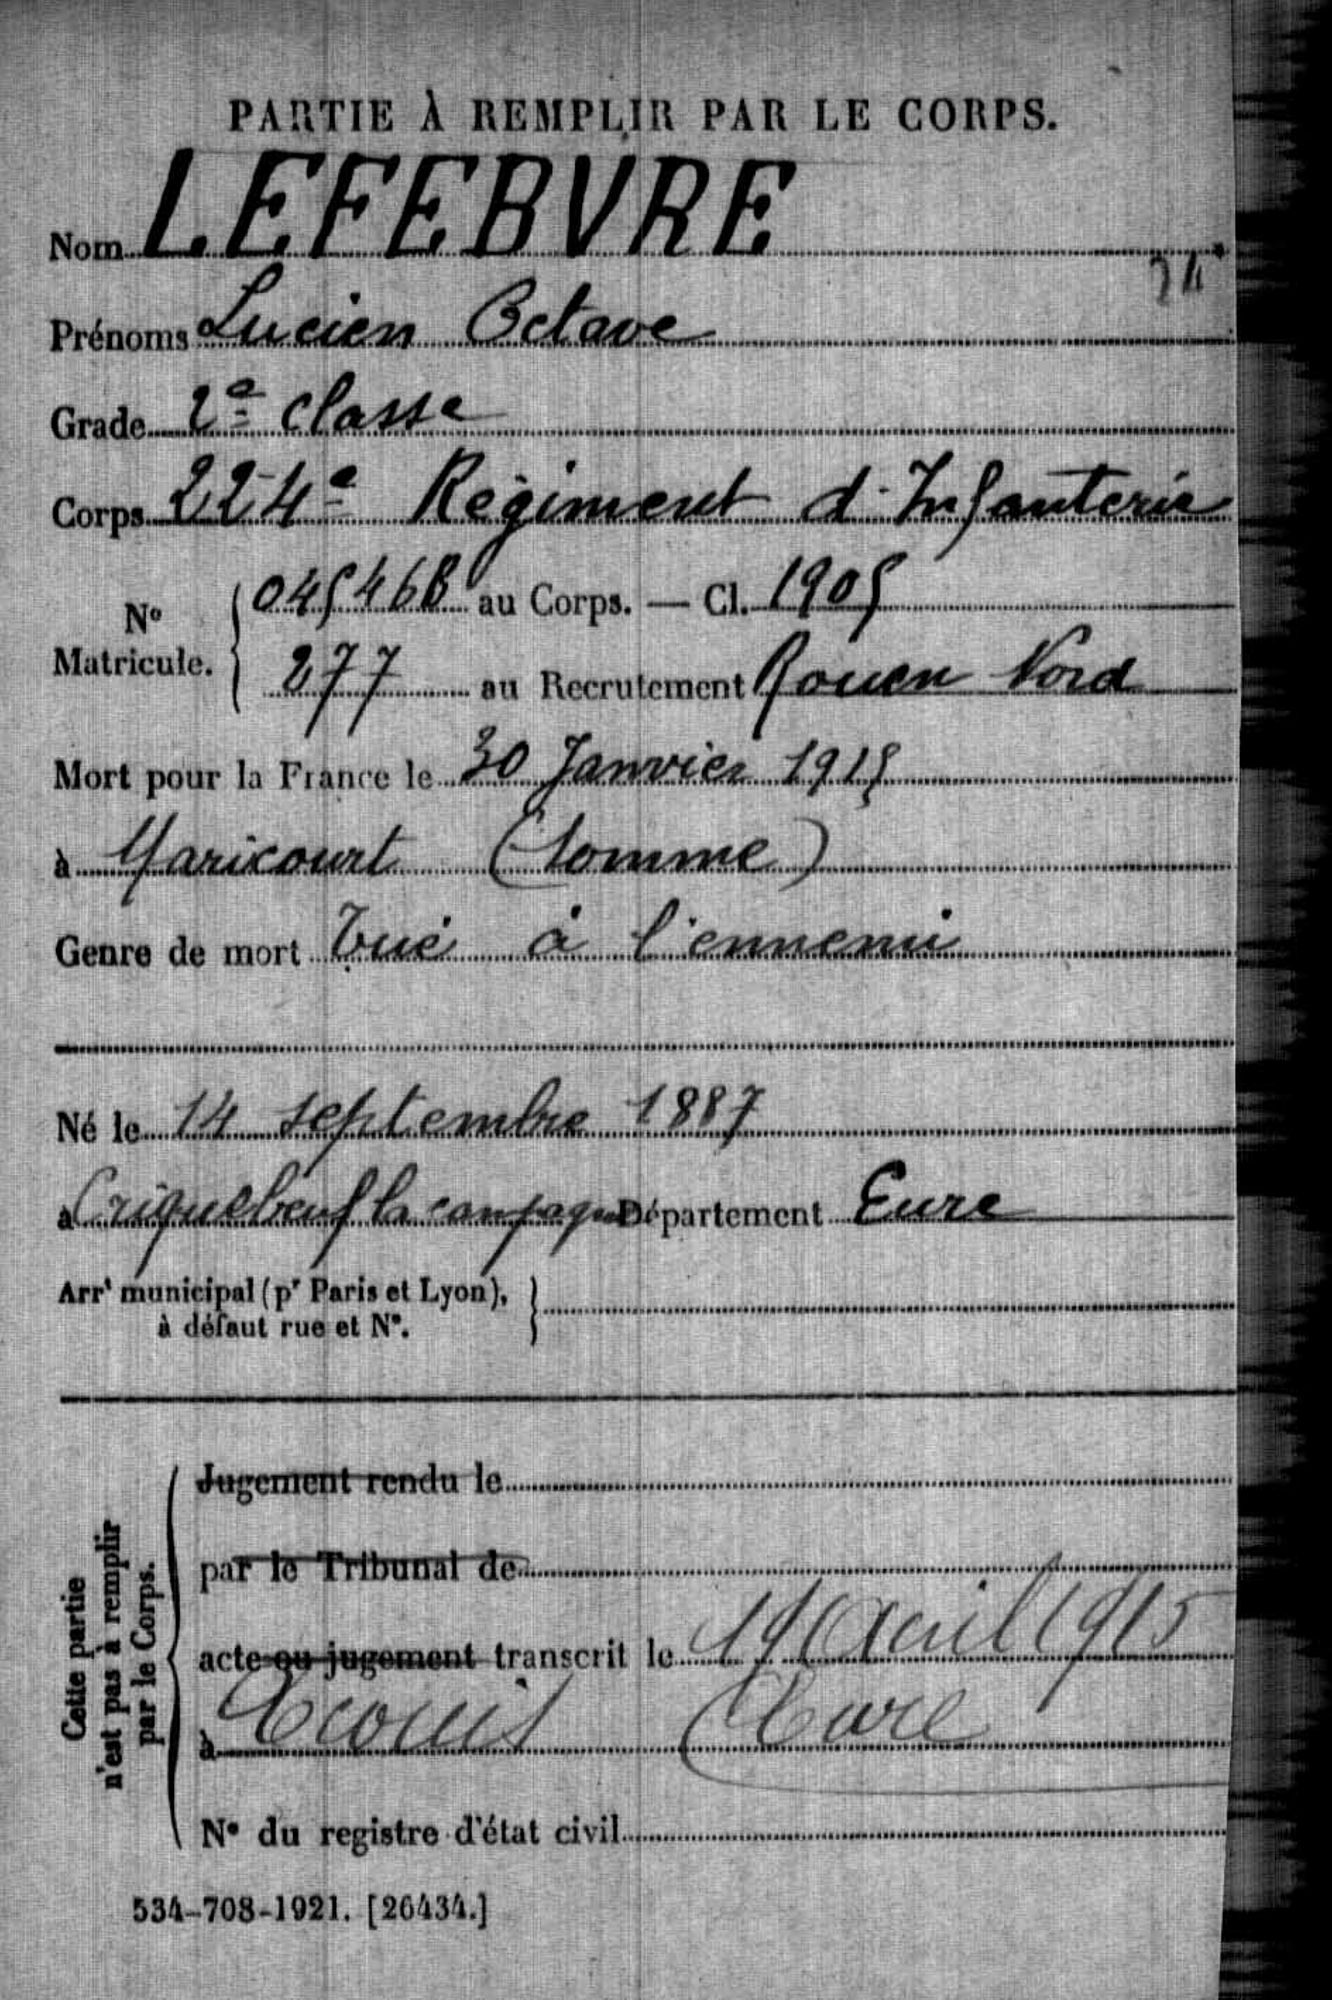 PARTIE À REMPLIR PAR LE CORPS.
Nom LEFEBVRE
24
Prénoms Lucien Octave
Grade 2e classe
Corps 224e Régiment d'Infanterie
No Matricule. { 045468 au Corps. — Cl. 1905
277 au Recrutement Rouen Nord
Mort pour la France le 30 Janvier 1915
à Maricourt (Somme)
Genre de mort Tué à l'ennemi
Né le 14 septembre 1887
à Criquebeuf la campagne Département Eure
Arrt municipal (pr Paris et Lyon), }
à défaut rue et No.
Cette partie
n'est pas à remplir
par le Corps.
Jugement rendu le
par le Tribunal de
acte ou jugement transcrit le 19 Avril 1915
à Ecouis (Eure
No du registre d'état civil
534-708-1921. [26434.]